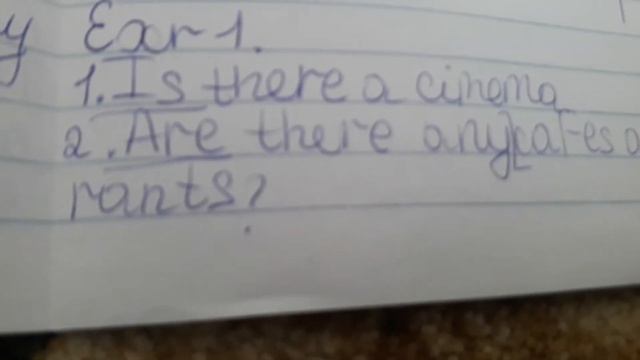 y Exr 1.
1. Is there a cinema
2. Are there any cafes
rants?